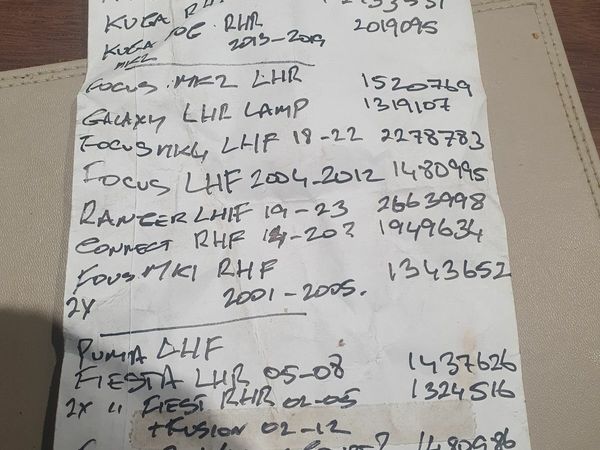 KUGA
KUGA DE RHR 2019095
MK2 2013-2019
FOCUS MK2 LHR 1520769
GALAXY LHR LAMP 1319107
FOCUS MK4 LHF 18-22 2278783
FOCUS LHF 2004-2012 1480995
RANGER LHF 19-23 2663998
CONNECT RHF 14-20? 1949634
FOUS MK1 RHF 1343652
2X 2001-2005.
PUMA LHF
FIESTA LHR 05-08 1437626
2X " FIEST RHR 02-05 1324516
+FUSION 02-12
1480986